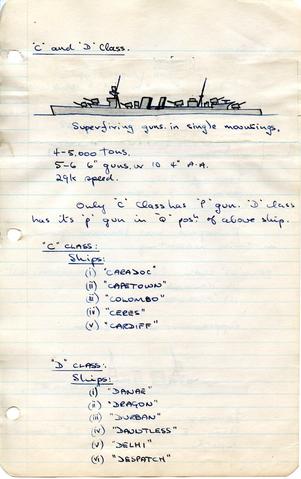 "C" and "D" Class.
Superfiring guns in single mountings.
4-5,000 tons.
5-6 6" guns. or 10 4" A.A.
29k speed.
Only "C" Class has "P" gun. "D" Class
has its "P" gun in "Q" posn of above ship.
"C" CLASS:
Ships:
(i) "CARADOC"
(ii) "CAPETOWN"
(iii) "COLOMBO"
(iv) "CERES"
(v) "CARDIFF"
"D" CLASS:
Ships:
(i) "DANAE"
(ii) "DRAGON"
(iii) "DURBAN"
(iv) "DAUNTLESS"
(v) "DELHI"
(vi) "DESPATCH"